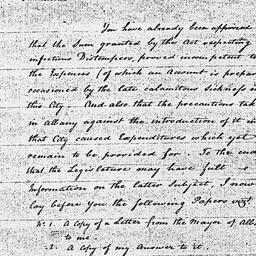 You have already been apprised
that the Sum granted by the Act respecting
infectious Distempers, proved incompetent to
the Expences (of which an Account is prepar
occasioned by the late calamitous Sickness in
this City. And also that the precautions tak
in Albany against the introduction of it in
that City caused Expenditures which yet
remain to be provided for. To the end
that the Legislature may have full
Information on the latter Subject, I now
lay before you the following Papers vizt
No 1. A Copy of a Letter from the Mayor of Alb
to me.
2. A Copy of my Answer to it.